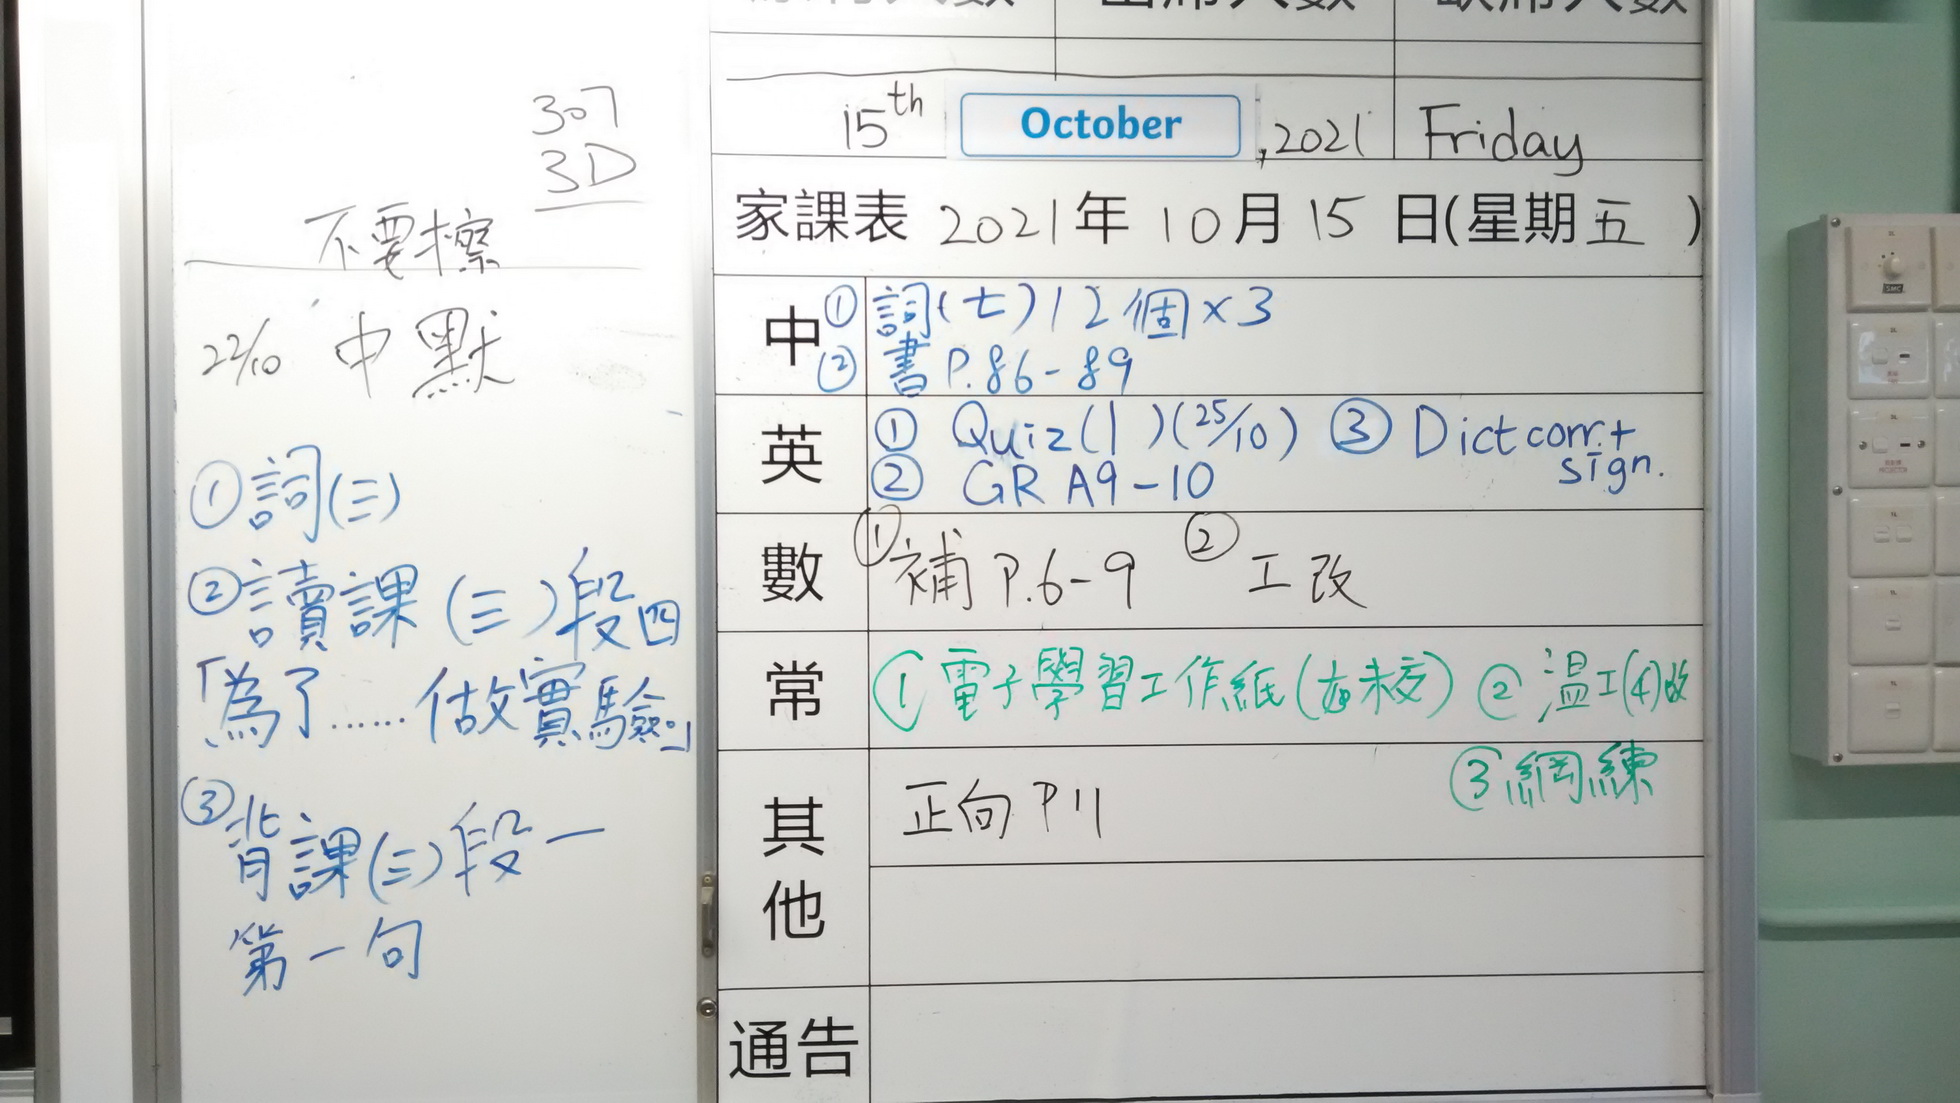 307
3D
不要擦
22/10 中默
①詞(三)
②讀課(三)段四
「為了......做實驗。」
③背課(三)段一
第一句
出席人數
15th October, 2021 Friday
家課表 2021年 10月 15 日(星期五 )
中 ①詞(七)12個×3
②書 P.86-89
英 ① Quiz(1)(25/10) ③ Dict corr.+
② GR A9-10 sign.
數 ①補 P.6-9 ②工改
常 ①電子學習工作紙(如未交) ②溫工(4)改
③網練
其他 正向 P11
通告